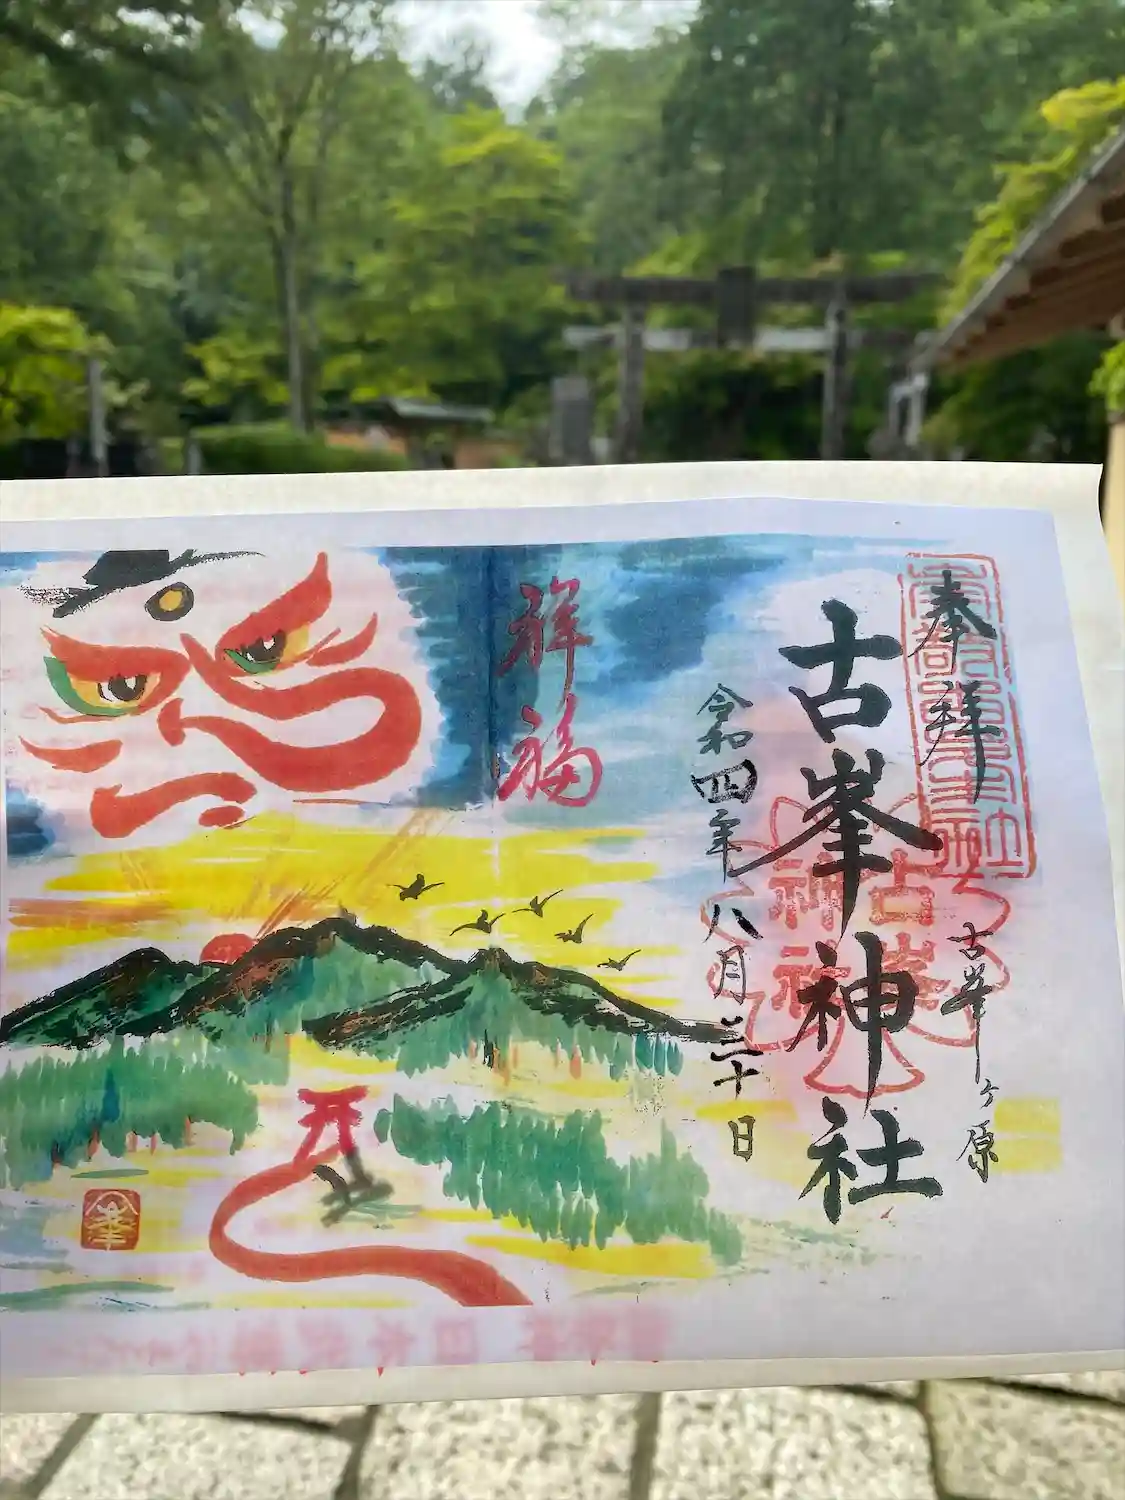 奉拝
古峯ヶ原
古峯神社
古峯
神社
令和四年八月三十日
祥福